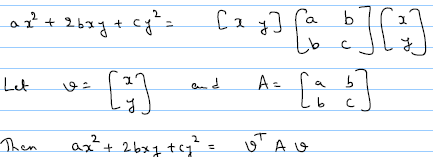 ax² + 2bxy + cy² = [x y] [a b; b c] [x; y]
Let v = [x; y] and A = [a b; b c]
Then ax² + 2bxy + cy² = vᵀ A v